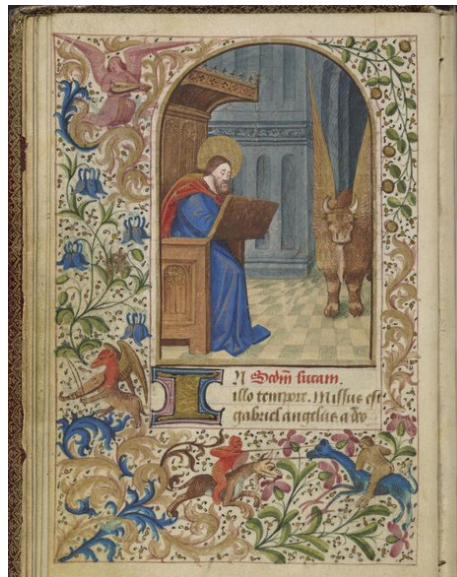 N Scdm lucam.
illo tempore. Missus est
gabriel angelus a deo